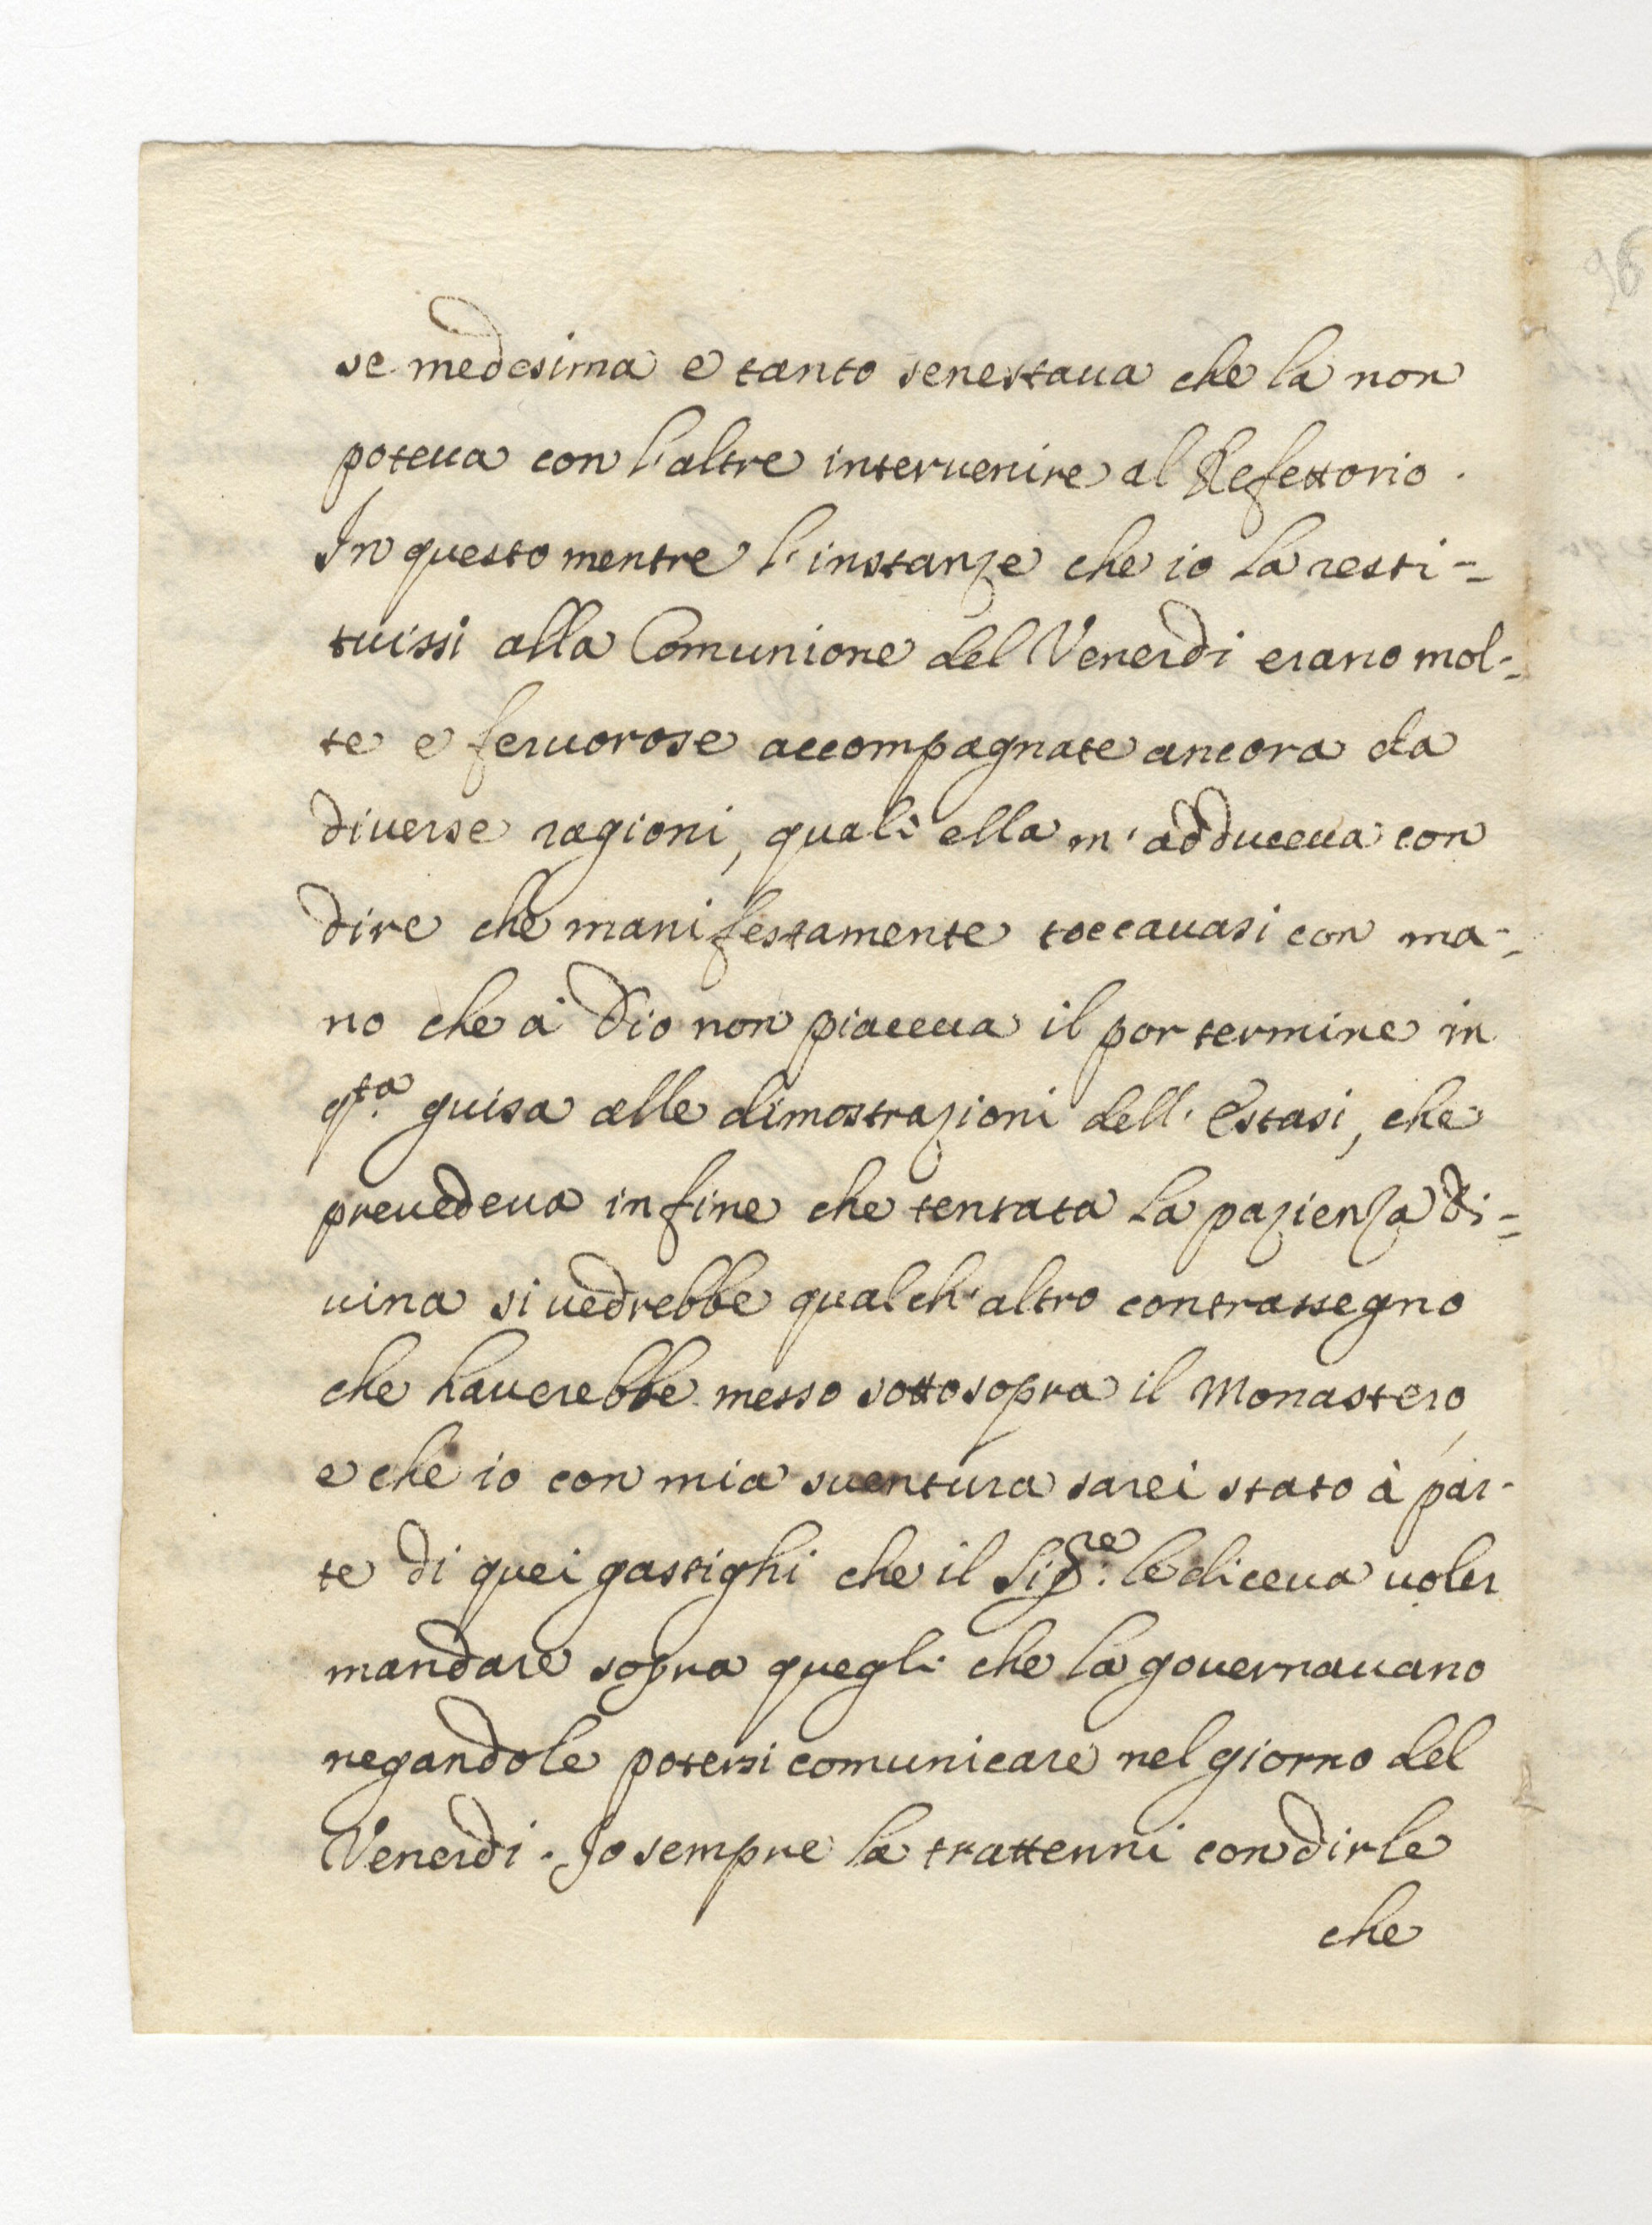 se medesima e tanto senestaua che la non
poteua con l'altre interuenire al Refettorio.
In questo mentre l'instanze che io la resti=
tuissi alla Comunione del Venerdi erano mol=
te e feruorose accompagnate ancora da
diuerse ragioni, quali ella m'adduceua con
dire che manifestamente toccauasi con ma=
no che à Dio non piaceua il por termine in
q.ta guisa alle dimostrazioni dell'Estasi, che
preuedeua in fine che tentata la pazienza di=
uina si uedrebbe qualch'altro contrassegno
che hauerebbe messo sottosopra il Monastero,
e che io con mia suentura sarei stato à par-
te di quei gastighi che il Sig.re le diceua uoler
mandare sopra quegli che la gouernauano
negandole potersi comunicare nel giorno del
Venerdi. Io sempre la trattenni con dirle
che
96